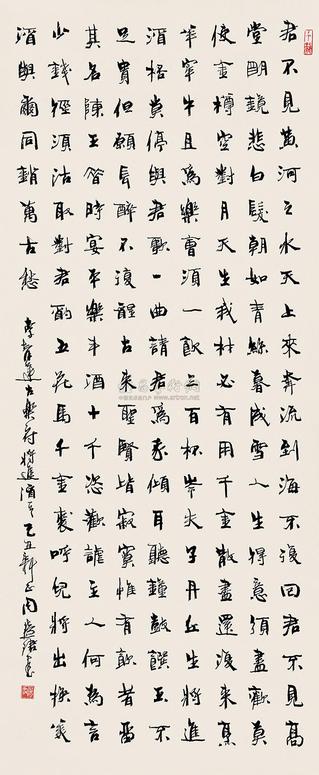 君不見黃河之水天上來奔流到海不復回君不見高
堂明鏡悲白髮朝如青絲暮成雪人生得意須盡歡莫
使金樽空對月天生我材必有用千金散盡還復來烹
羊宰牛且為樂會須一飲三百杯岑夫子丹丘生將進
酒杯莫停與君歌一曲請君為我傾耳聽鐘鼓饌玉不
足貴但願長醉不復醒古來聖賢皆寂寞惟有飲者留
其名陳王昔時宴平樂斗酒十千恣歡謔主人何為言
少錢徑須沽取對君酌五花馬千金裘呼兒將出換美
酒與爾同銷萬古愁
李青蓮古樂府將進酒 己丑新正周慧珺書